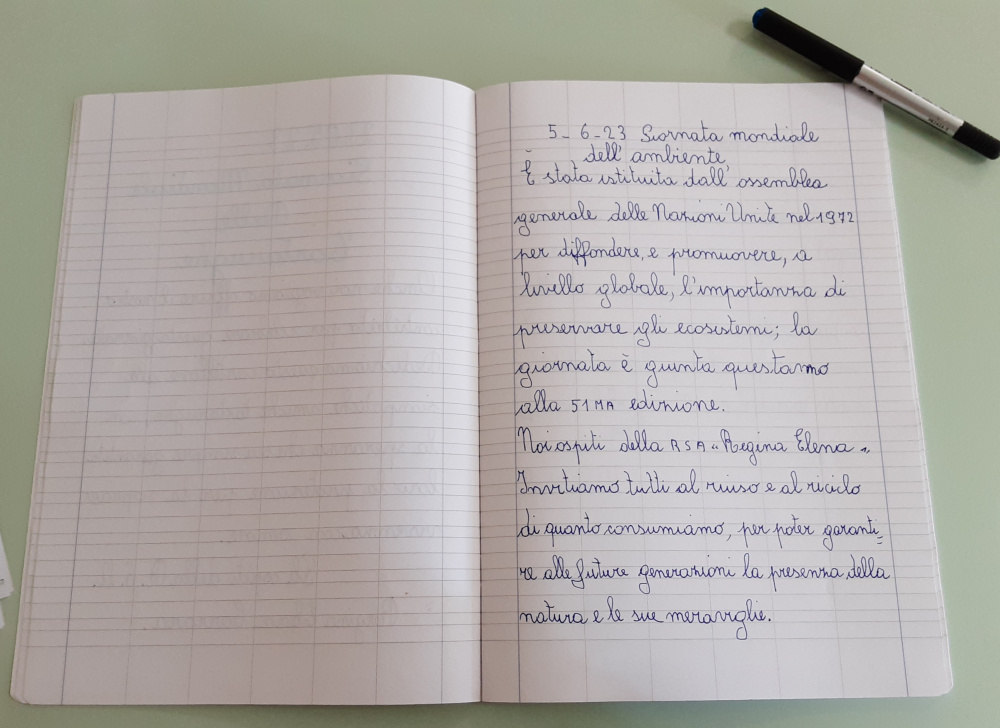 5-6-23 Giornata mondiale
dell'ambiente
È stata istituita dall'assemblea
generale delle Nazioni Unite nel 1972
per diffondere, e promuovere, a
livello globale, l'importanza di
preservare gli ecosistemi; la
giornata è giunta questanno
alla 51MA edizione.
Noi ospiti della RSA "Regina Elena"
Invitiamo tutti al riuso e al riciclo
di quanto consumiamo, per poter garanti=
re alle future generazioni la presenza della
natura e le sue meraviglie.